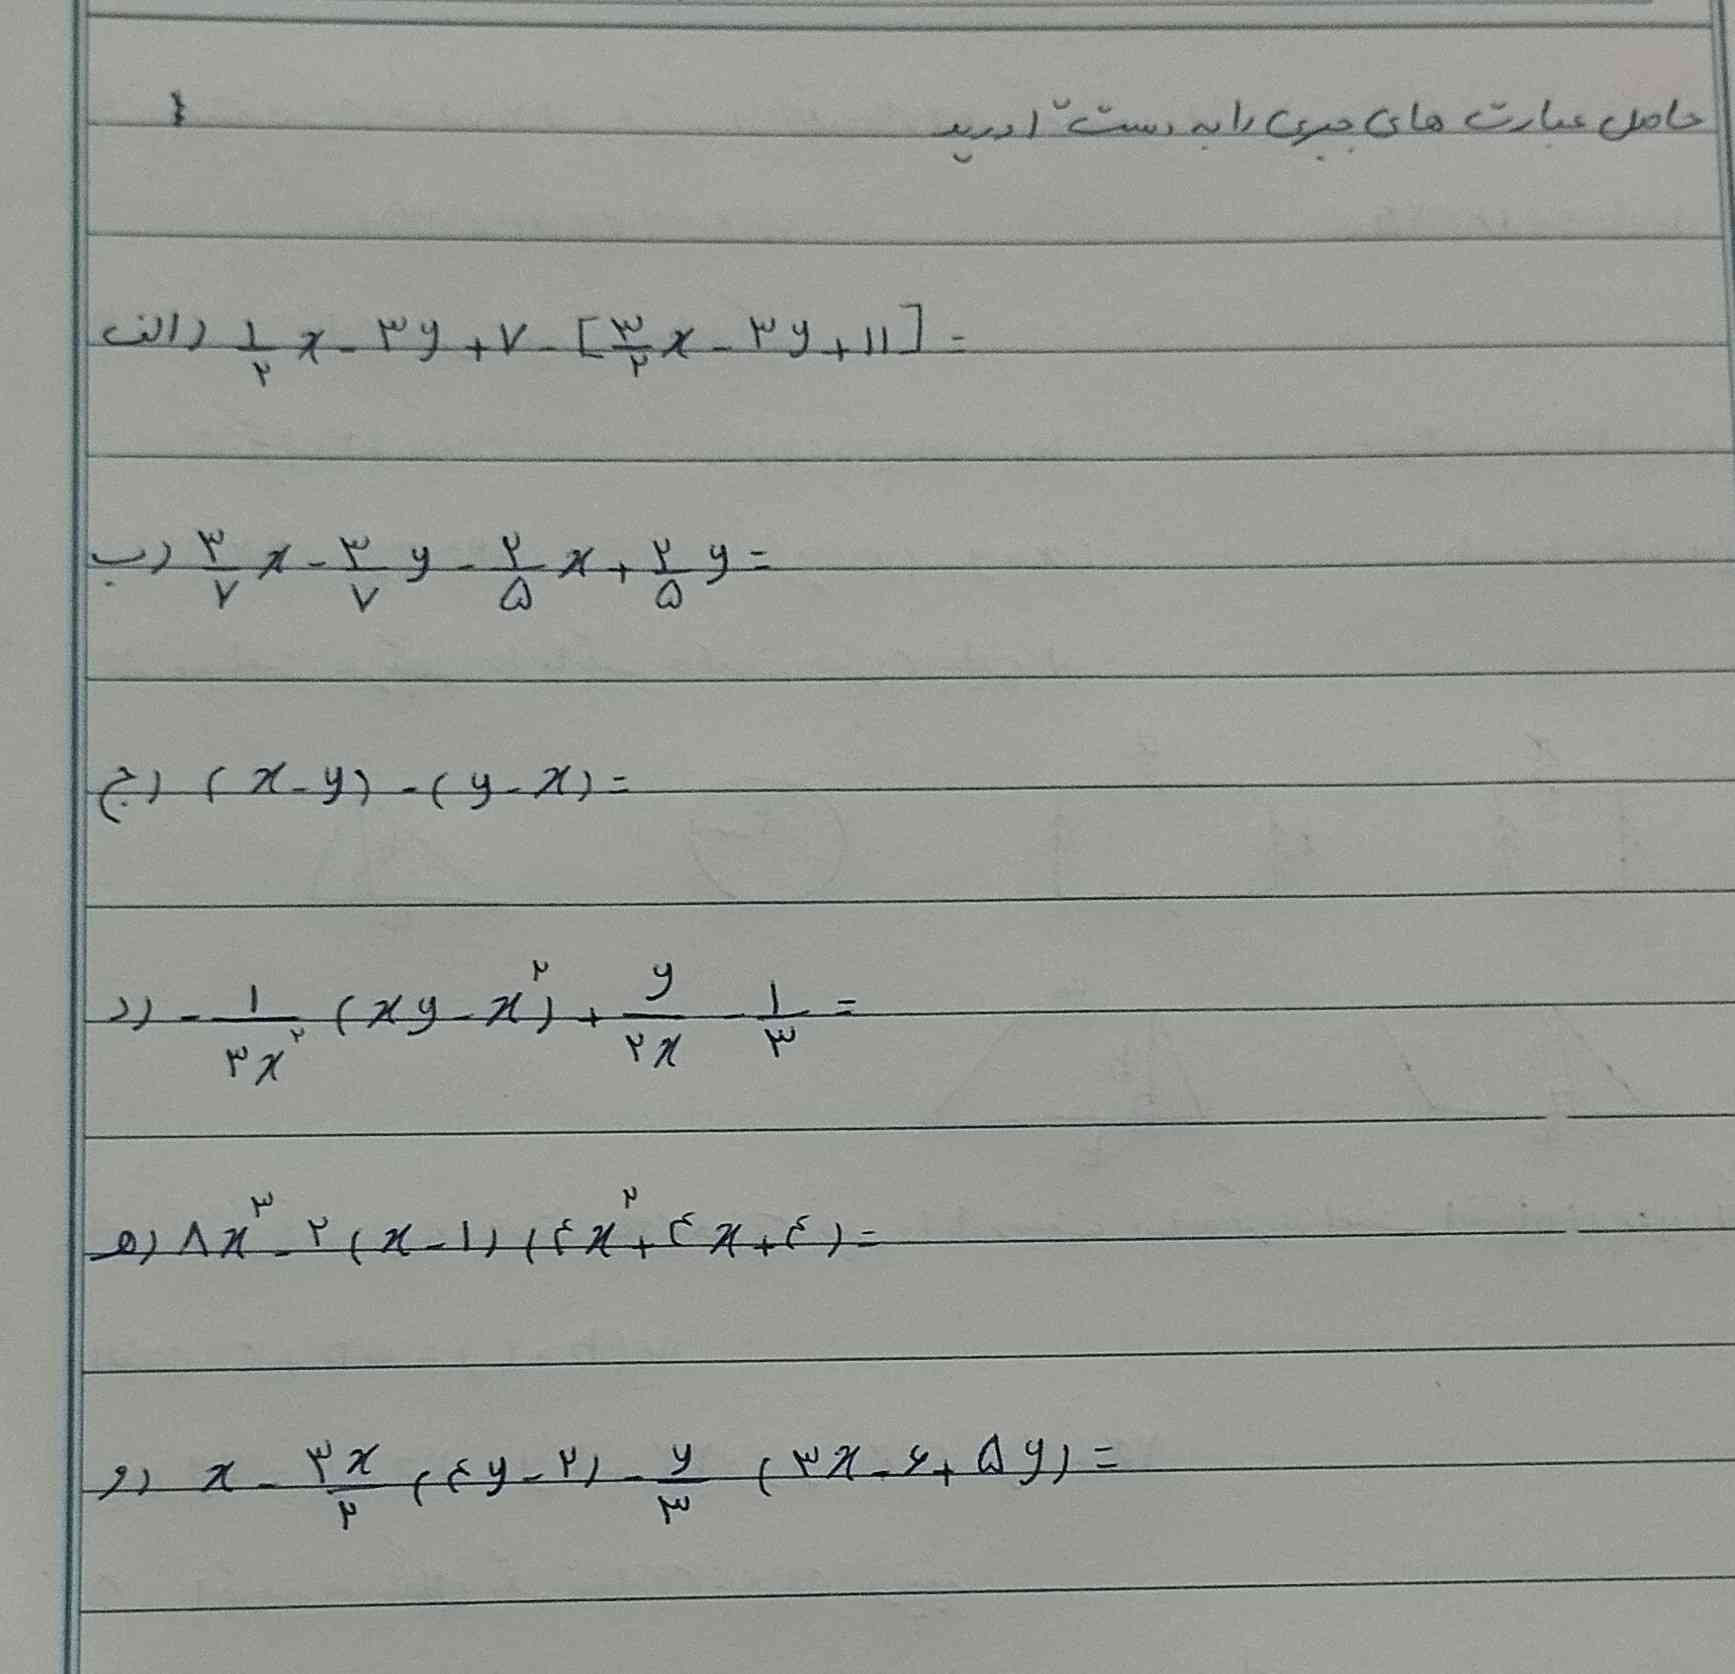 حاصل عبارت های جبری را به دست آورید
الف) ۱/۲ x - ۳y + ۷ - [۳/۲ x - ۳y + ۱۱] =
ب) ۳/۷ x - ۳/۷ y - ۲/۵ x + ۲/۵ y =
ج) (x - y) - (y - x) =
د) - ۱/۳x^۲ (xy - x^۲) + y/۲x - ۱/۳ =
ه) ۸x^۳ - ۲(x - ۱)(۴x^۲ + ۴x + ۴) =
و) x - ۳x/۲ (۴y - ۲) - y/۳ (۳x - ۶ + ۵y) =